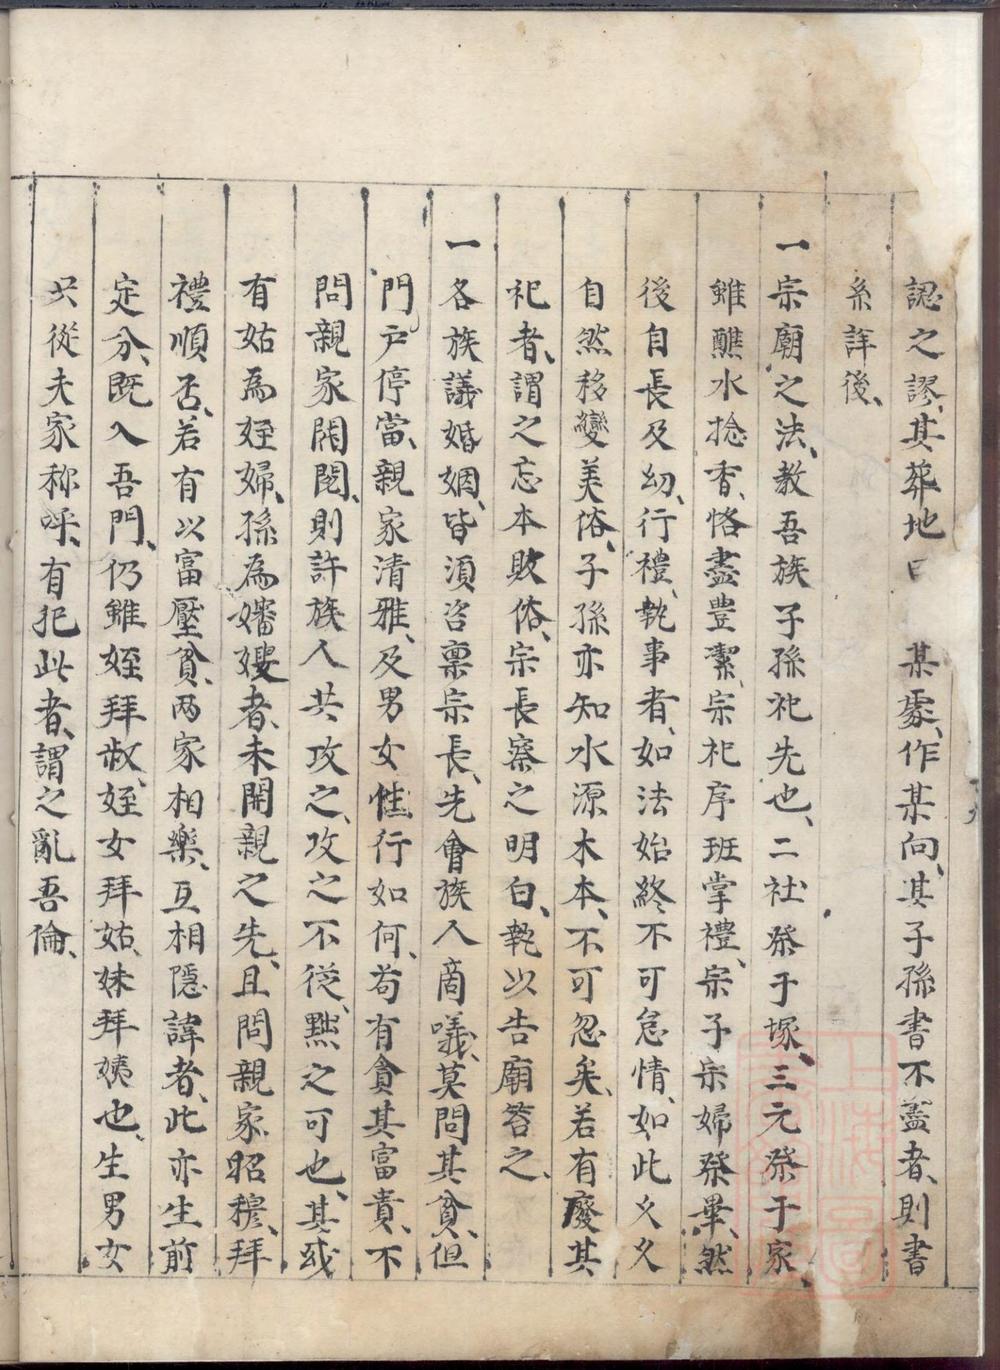 認之謬、其葬地曰 某處、作某向、其子孫書不盡者、則書
系詳後、
一宗廟之法、教吾族子孫祀先也、二社祭于塚、三元祭于家、
雖醮水捻香、恪盡豊潔、宗祀序班掌禮、宗子宗婦祭畢、然
後自長及幼、行禮、執事者、如法始終不可怠情、如此久久
自然移變美俗、子孫亦知水源木本、不可忽矣、若有廢其
祀者、謂之忘本敗俗、宗長察之明白、執以告廟笞之、
一各族議婚姻、皆須咨稟宗長、先會族人商嘰、莫問其貧、但
門户停當、親家清雅、及男女性行如何、苟有貪其富貴、不
問親家閥閱、則許族人共攻之、攻之不從、黜之可也、其或
有姑為姪婦、孫為嬸嫂者、未開親之先、且問親家昭穆、拜
禮順否、若有以富壓貧、両家相樂、互相隱諱者、此亦生前
定分、既入吾門、仍雖姪拜叔、姪女拜姑、妹拜姨也、生男女
只從夫家称呼、有犯此者、謂之亂吾倫、